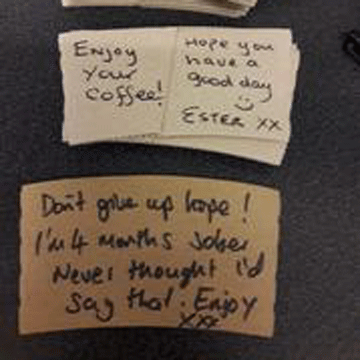 Enjoy
your
coffee!
Hope you
have a
good day
ESTER XX
Don't give up hope!
I'm 4 months sober
Never thought I'd
say that. Enjoy
xxx